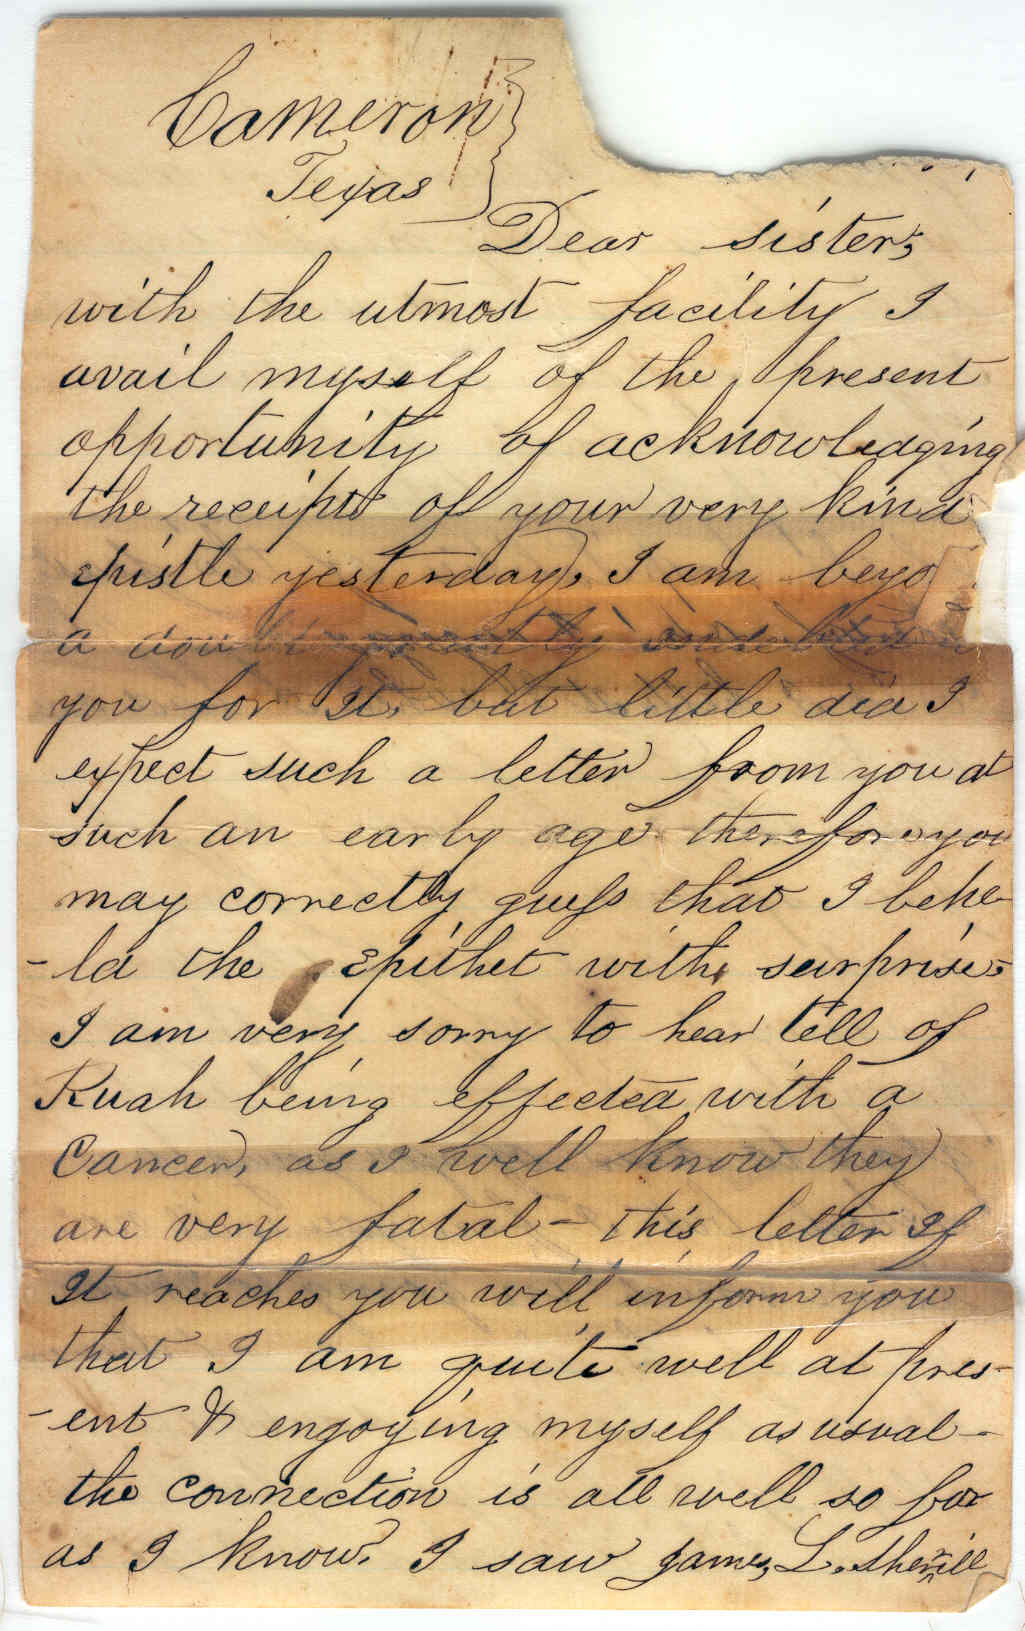 Cameron
Texas
Dear sister,
with the utmost facility I
avail myself of the present
opportunity of acknowledging
the receipt of your very kind
epistle yesterday, I am beyo
a
you for It, but little did I
expect such a letter from you at
such an early age therefore you
may correctly guess that I behe-
-ld the Epithet with surprise-
I am very sorry to hear tell of
Ruah being effected with a
Cancer, as I well know they
are very fatal - this letter If
It reaches you will inform you
that I am quite well at pres-
-ent & engoying myself as usual -
the connection is all well so far
as I know. I saw James, L. Sherrill